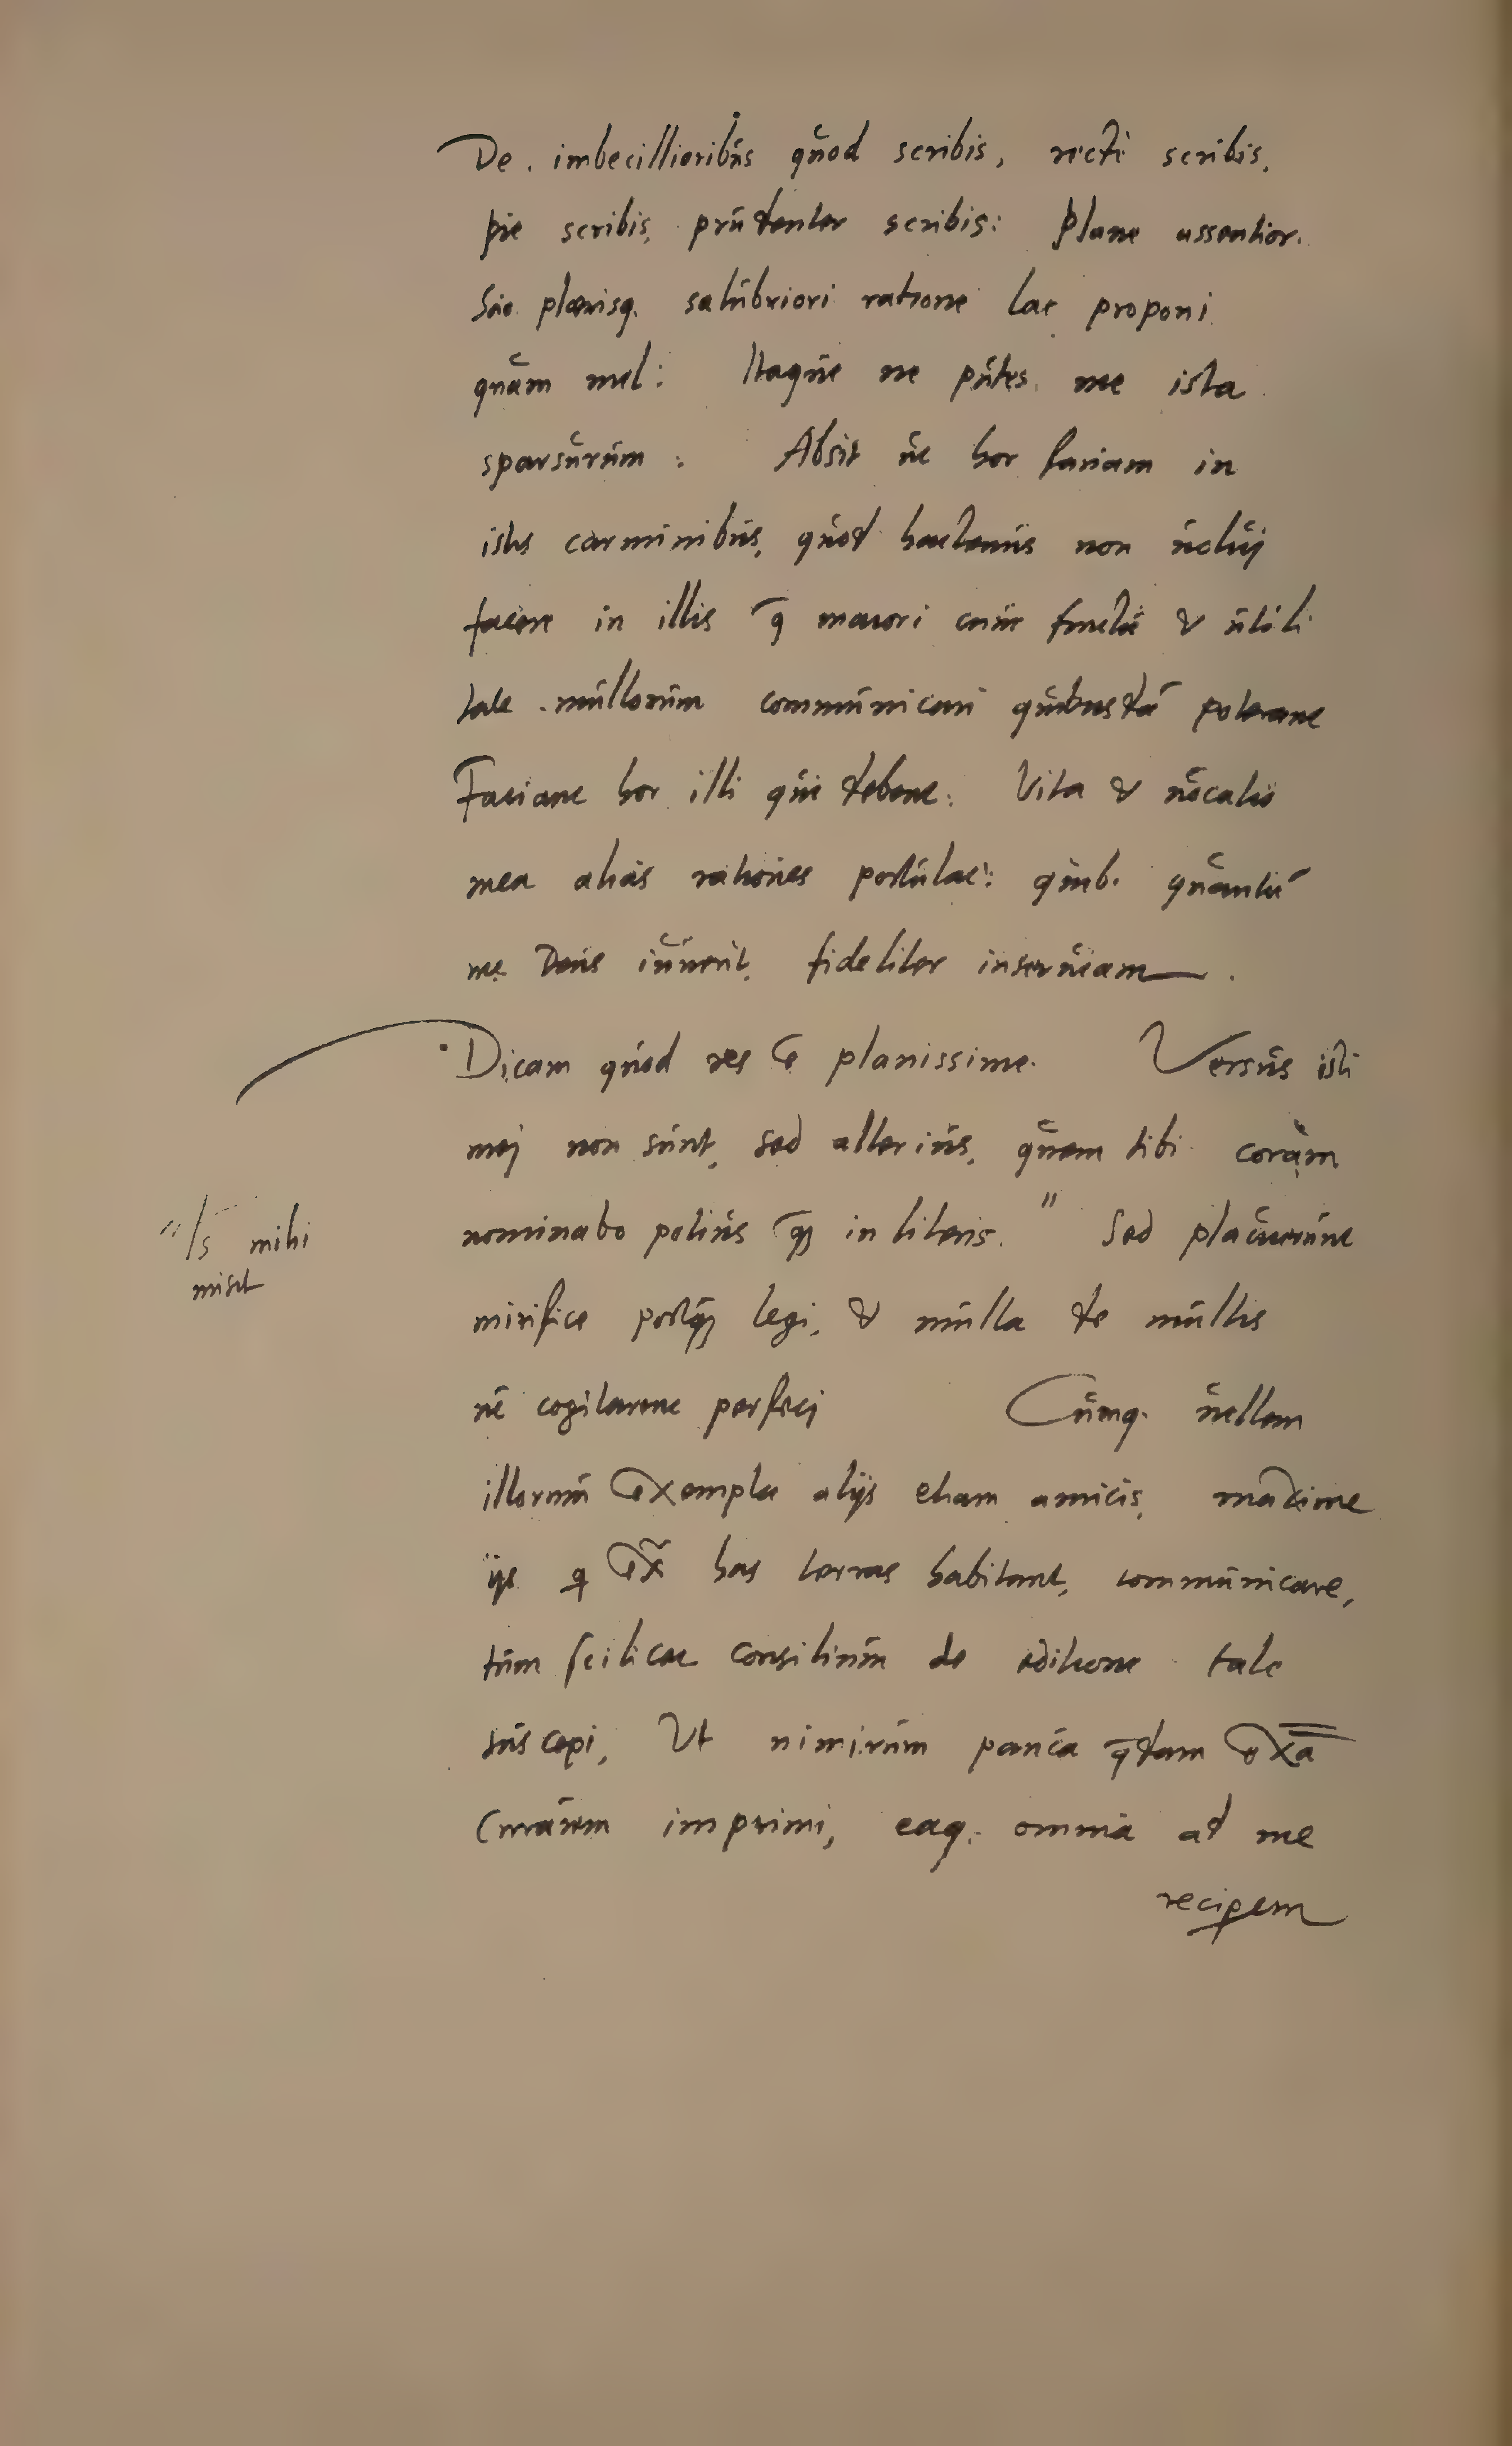 De imbecillioribus quod scribis, recte scribis,
pie scribis, prudenter scribis: Plane assentior.
Sic plerisq. salubriori ratione lac proponi
quàm mel: Itaque ne putes me ista
sparsurum: Absit ut hoc faciam in
istis carminibus, quod hactenus non uolui
facere in illis q maiori cum fructu & utili
tate multorum communicari quibusdā poterant
Faciant hoc illi qui debent: Vita & uocatio
mea alias rationes postulat: quib. quantū
me Deus iuuerit, fideliter inseruiam.
Dicam quod res ē planissime. Versus isti
mei non sunt, sed alterius, quem tibi coràm
nominabo potius q̄ȝ in literis." Sed placuerunt
"Is mihi
misit
mirifice postq̄ȝ legi, & multa de multis
ut cogitarent perfeci Cumq. uellem
illorum Exempla alijs etiam amicis, maxime
ijs q Ex̄ has terras habitant, communicare,
tum scilicet consilium de editione tale
suscepi, Ut nimirum pauca q̄dam Ex̄a
Curarem imprimi, eaq. omnia ad me
reciperem